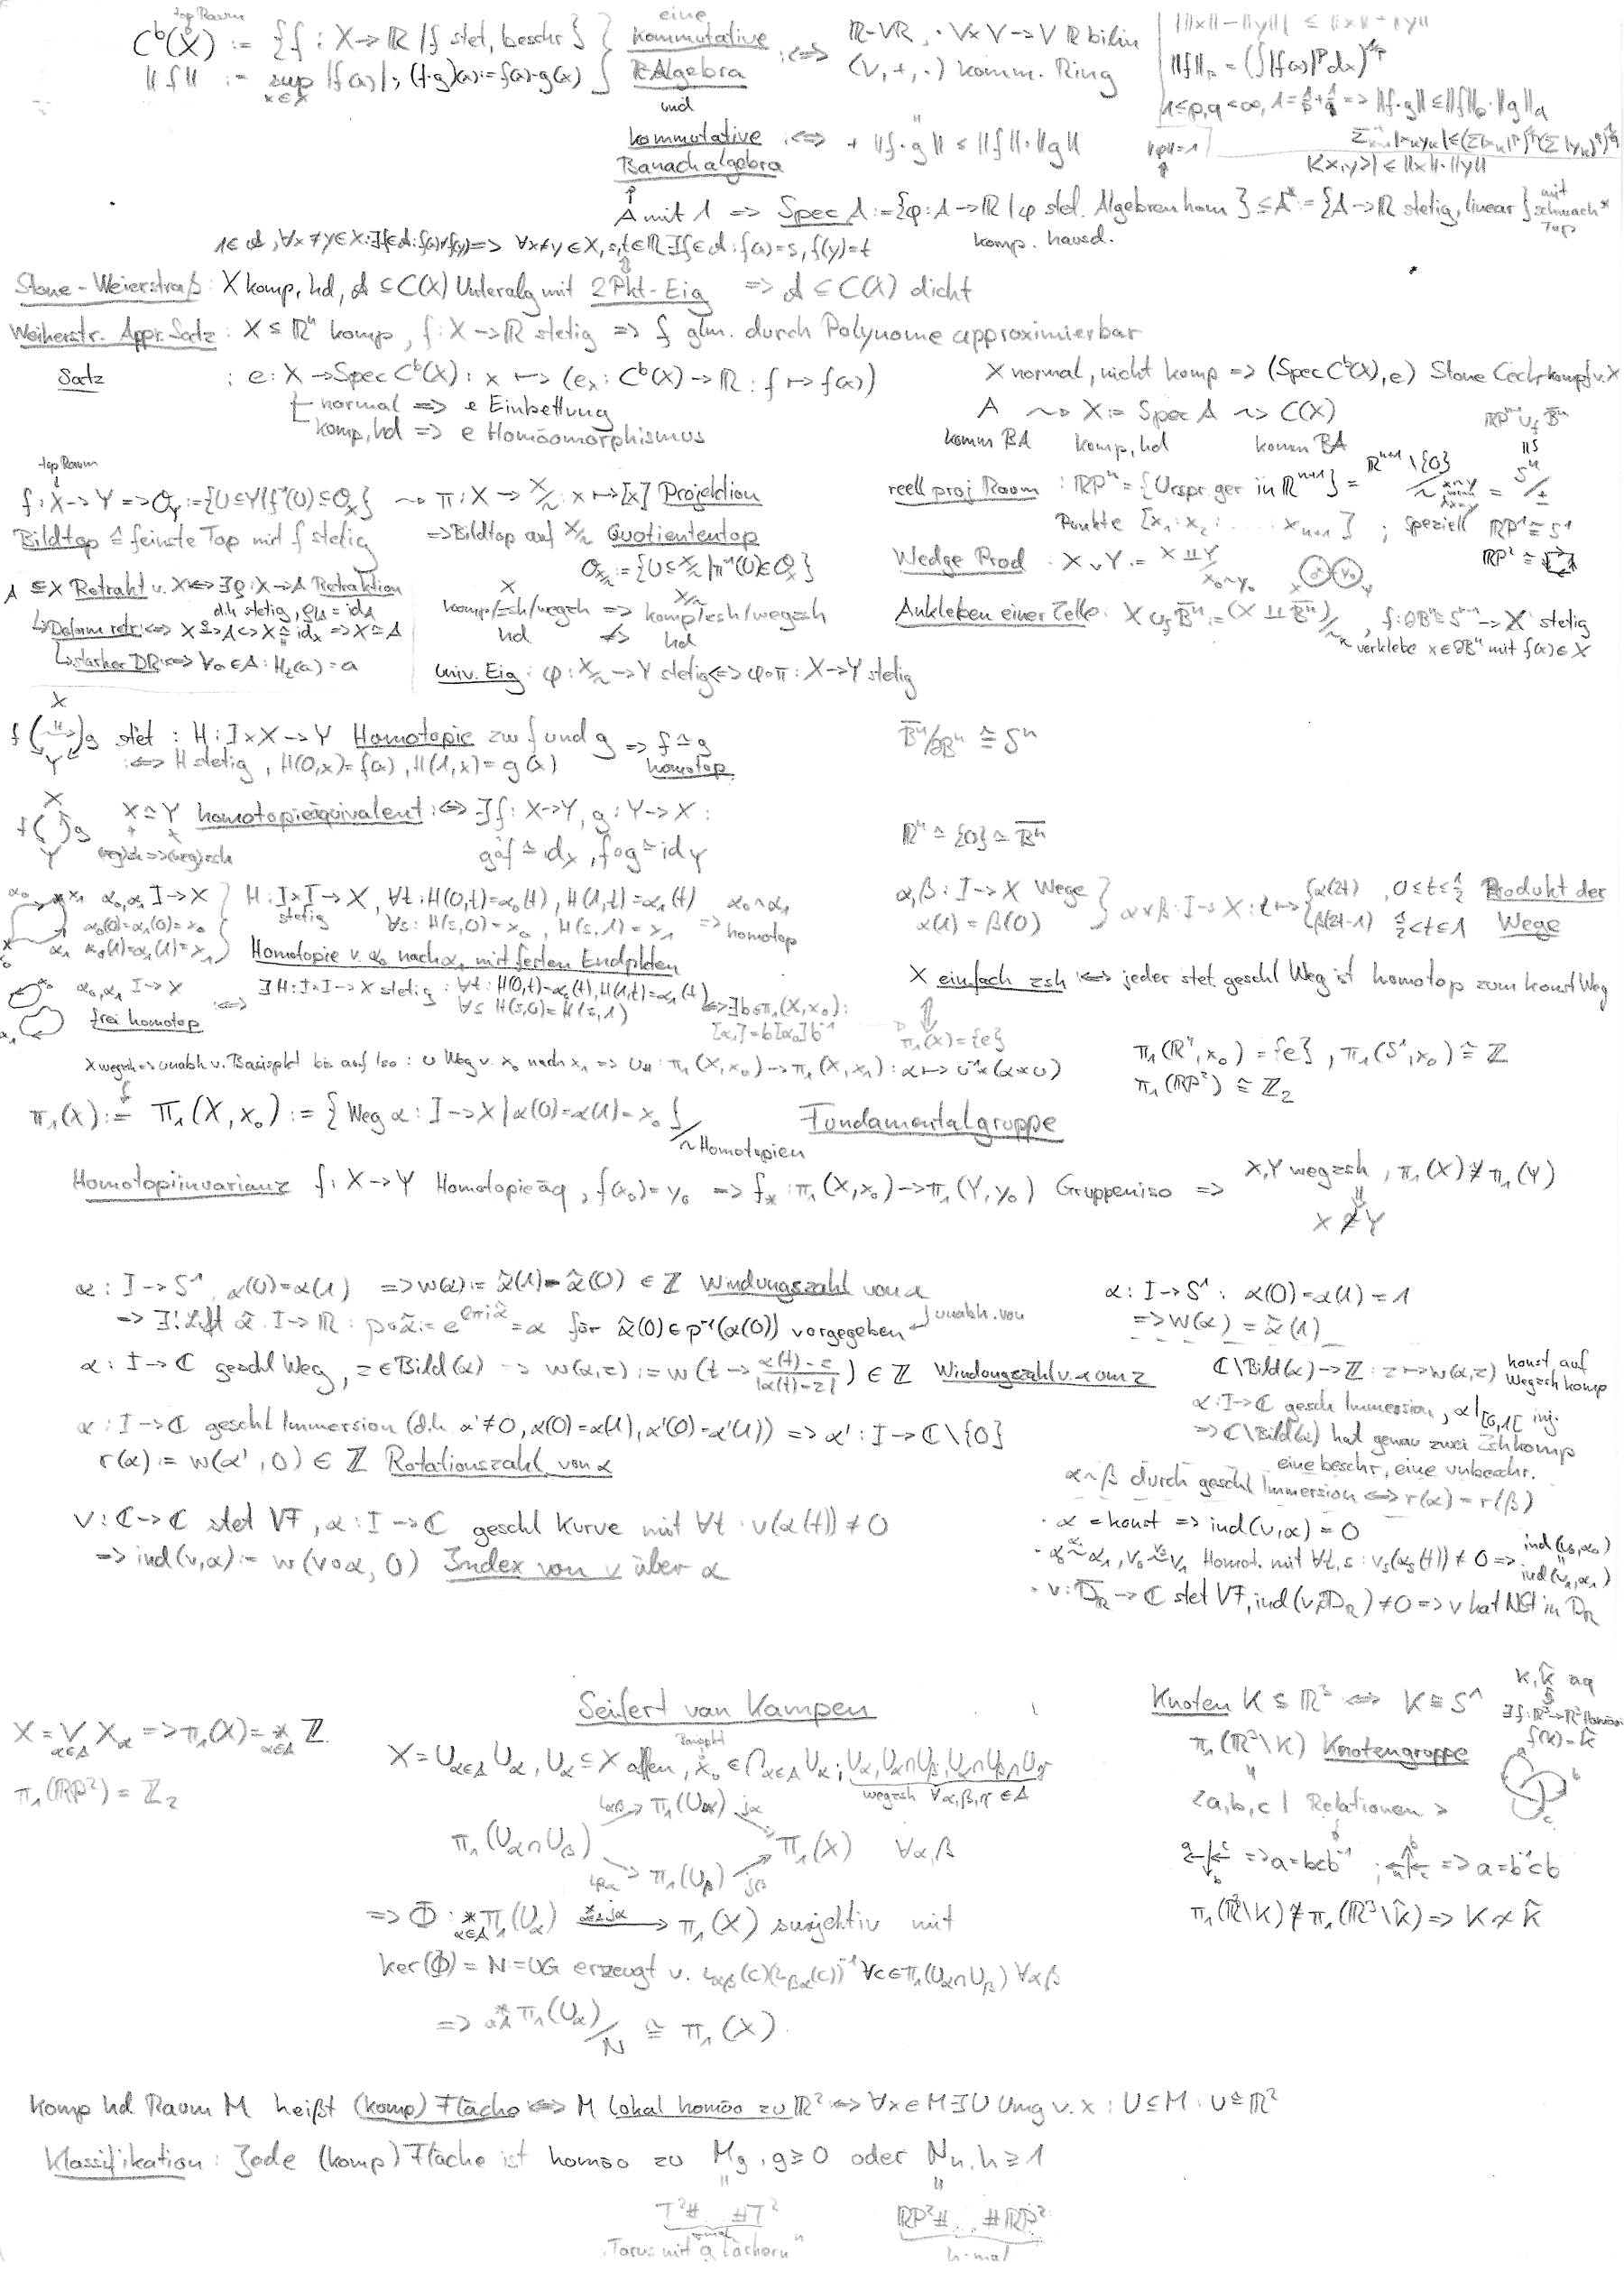 top Raum
C^b(X) := {f : X → ℝ | f stet, beschr}
‖f‖ := sup_{x∈X} |f(x)|, (f·g)(x) := f(x)·g(x)
eine kommutative ℝ-Algebra :⟺ ℝ-VR, · V×V → V ℝ bilin
(V, +, ·) komm. Ring
und
kommutative Banachalgebra :⟺ + ‖f·g‖ ≤ ‖f‖·‖g‖
|‖x‖ - ‖y‖| ≤ ‖x+y‖
‖f‖_p = (∫|f(x)|^p dx)^{1/p}
1≤p,q<∞, 1 = 1/p + 1/q => ‖f·g‖ ≤ ‖f‖_p·‖g‖_q
|<x,y>| ≤ ‖x‖·‖y‖
‖φ‖=1
A mit 1 => Spec A := {φ : A → ℝ | φ stet. Algebrenhom} ⊆ A* := {A → ℝ stetig, linear} mit schwach* Top
komp. hausd.
1∈A, ∀x≠y∈X ∃f∈A : f(x)≠f(y) => ∀x≠y∈X, s,t∈ℝ ∃f∈A : f(x)=s, f(y)=t
Stone-Weierstraß : X komp, hd, A ⊆ C(X) Unteralg mit 2Pkt-Eig => A ⊆ C(X) dicht
Weiherstr. Appr. Satz : X ⊆ ℝⁿ komp, f : X → ℝ stetig => f glm. durch Polynome approximierbar
Satz : e : X → Spec C^b(X) : x ↦ (e_x : C^b(X) → ℝ : f ↦ f(x))
normal => e Einbettung
komp, hd => e Homöomorphismus
X normal, nicht komp => (Spec C^b(X), e) Stone Cech kompf v. X
A ⇝ X := Spec A ⇝ C(X)
komm BA komp, hd komm BA
top Raum
f : X → Y => O_Y := {U ⊆ Y | f⁻¹(U) ⊆ O_X} ⇝ π : X → X/~ : x ↦ [x] Projektion
Bildtop ≙ feinste Top mit f stetig => Bildtop auf X/~ Quotiententop
O_{X/~} := {U ⊆ X/~ | π⁻¹(U) ∈ O_X}
reell proj Raum : ℝPⁿ = {Urspr. ger in ℝⁿ⁺¹} = ℝⁿ⁺¹\{0}/~ = Sⁿ/±
Punkte [x₁ : x₂ : .... x_{n+1}] ; speziell ℝP¹ ≅ S¹
Wedge Prod : X ∨ Y := X ⨿ Y / x₀~y₀
ℝP² ≅
A ⊆ X Retrakt v. X ⟺ ∃ρ : X → A Retraktion
d.h stetig, ρ|_A = id_A
Deform retr :⟺ X ≃ A ⟺ X ≃ id_X => X ≃ A
starker DR :⟺ ∀a∈A : H_t(a) = a
X komp/zsh/wegzsh => X/~ komp/zsh/wegzsh
hd ⇏ hd
Ankleben einer Zelle : X ∪_f B̄ⁿ := (X ⨿ B̄ⁿ)/~, f : ∂Bⁿ ≅ Sⁿ⁻¹ → X stetig
verklebe x∈∂Bⁿ mit f(x)∈X
univ. Eig : φ : X/~ → Y stetig ⟺ φ∘π : X → Y stetig
f, g stet : H : I×X → Y Homotopie zw f und g => f ≃ g homotop
:⟺ H stetig, H(0,x) = f(x), H(1,x) = g(x)
B̄ⁿ/∂Bⁿ ≅ Sⁿ
X ≃ Y homotopieäquivalent :⟺ ∃f : X → Y, g : Y → X :
g∘f ≃ id_X, f∘g ≃ id_Y
(weg)zsh => (weg)zsh
ℝⁿ ≃ {0} ≃ B̄ⁿ
α₀, α₁ I → X
α₀(0)=α₁(0)=x₀
α₀(1)=α₁(1)=x₁
H : I×I → X stetig, ∀t : H(0,t)=α₀(t), H(1,t)=α₁(t)
∀s : H(s,0) = x₀, H(s,1) = x₁ => α₀~α₁ homotop
Homotopie v. α₀ nach α₁ mit festen Endpkten
α,β : I → X Wege
α(1) = β(0)
α*β : I → X : t ↦ {α(2t), 0≤t≤1/2
β(2t-1) 1/2<t≤1
Produkt der Wege
α₀, α₁ I → X frei homotop ⟺ ∃H : I×I → X stetig : ∀t : H(0,t)=α₀(t), H(1,t)=α₁(t)
∀s H(s,0) = H(s,1)
⟺ ∃b∈π₁(X,x₀) : [α₁] = b[α₀]b⁻¹
X einfach zsh :⟺ jeder stet geschl Weg ist homotop zum konst Weg
π₁(X) = {e}
X wegzsh => unabh v. Basispkt bis auf Iso : u Weg v. x₀ nach x₁ => u_# : π₁(X,x₀) → π₁(X,x₁) : α ↦ u⁻¹*(α*u)
π₁(ℝⁿ,x₀) = {e}, π₁(S¹,x₀) ≅ ℤ
π₁(ℝP²) ≅ ℤ₂
π₁(X) := π₁(X,x₀) := {Weg α : I → X | α(0)=α(1)=x₀}/~Homotopien
Fundamentalgruppe
Homotopiinvarianz f : X → Y Homotopieäq, f(x₀) = y₀ => f_* : π₁(X,x₀) → π₁(Y,y₀) Gruppeniso => X,Y wegzsh, π₁(X) ≇ π₁(Y)
X ≄ Y
α : I → S¹, α(0)=α(1) => w(α) := α̃(1) - α̃(0) ∈ ℤ Windungszahl von α
=> ∃! Lift α̃ : I → ℝ : p∘α̃ := e^{2πiα̃} = α für α̃(0)∈p⁻¹(α(0)) vorgegeben
unabh. von
α : I → S¹ : α(0)=α(1)=1
=> w(α) = α̃(1)
α : I → ℂ geschl Weg, z∈Bild(α) => w(α,z) := w(t → (α(t)-z)/|α(t)-z|) ∈ ℤ Windungszahl v. α um z
ℂ\Bild(α) → ℤ : z ↦ w(α,z) konst auf Wegzshkomp
α : I → ℂ geschl Immersion (d.h α'≠0, α(0)=α(1), α'(0)=α'(1)) => α' : I → ℂ\{0}
r(α) := w(α',0) ∈ ℤ Rotationszahl von α
α : I → ℂ geschl Immersion, α|_{[0,1[} inj.
=> ℂ\Bild(α) hat genau zwei Zshkomp
eine beschr, eine unbeschr.
α~β durch geschl Immersion ⟺ r(α) = r(β)
v : ℂ → ℂ stet VF, α : I → ℂ geschl Kurve mit ∀t : v(α(t)) ≠ 0
=> ind(v,α) := w(v∘α, 0) Index von v über α
· α = konst => ind(v,α) = 0
· α₀~α₁, v₀~v₁ Homot. mit ∀t,s : v_s(α_s(t)) ≠ 0 => ind(v₀,α₀) = ind(v₁,α₁)
· v : D̄_R → ℂ stet VF, ind(v,∂D_R) ≠ 0 => v hat NSt in D_R
Seifert van Kampen
X = ⋁_{α∈A} X_α => π₁(X) = *_{α∈A} ℤ
π₁(ℝP²) = ℤ₂
Basispkt
X = ∪_{α∈A} U_α, U_α ⊆ X offen, x₀ ∈ ∩_{α∈A} U_α ; U_α, U_α∩U_β, U_α∩U_β∩U_γ
wegzsh ∀α,β,γ ∈A
ι_{αβ} π₁(U_α) j_α
π₁(U_α∩U_β) π₁(X) ∀α,β
ι_{βα} π₁(U_β) j_β
=> Φ : *_{α∈A} π₁(U_α) → π₁(X) surjektiv mit
ker(Φ) = N = UG erzeugt v. ι_{αβ}(c)(ι_{βα}(c))⁻¹ ∀c∈π₁(U_α∩U_β) ∀αβ
=> *_{α∈A} π₁(U_α)/N ≅ π₁(X).
Knoten K ⊆ ℝ³ ⟺ K ≅ S¹
K, K̃ äq
∃f : ℝ³→ℝ³ Homöo
f(K) = K̃
π₁(ℝ³\K) Knotengruppe
a b c
<a,b,c | Relationen>
a c b => a=bcb⁻¹ ; a b c => a=b⁻¹cb
π₁(ℝ³\K) ≇ π₁(ℝ³\K̃) => K ≁ K̃
Komp hd Raum M heißt (komp) Fläche :⟺ M lokal homöo zu ℝ² :⟺ ∀x∈M ∃U Umg v. x : U⊆M : U≅ℝ²
Klassifikation : Jede (komp) Fläche ist homöo zu M_g, g≥0 oder N_h, h≥1
T²#...#T² ℝP²#...#ℝP²
g-mal h-mal
"Torus mit g Löchern"